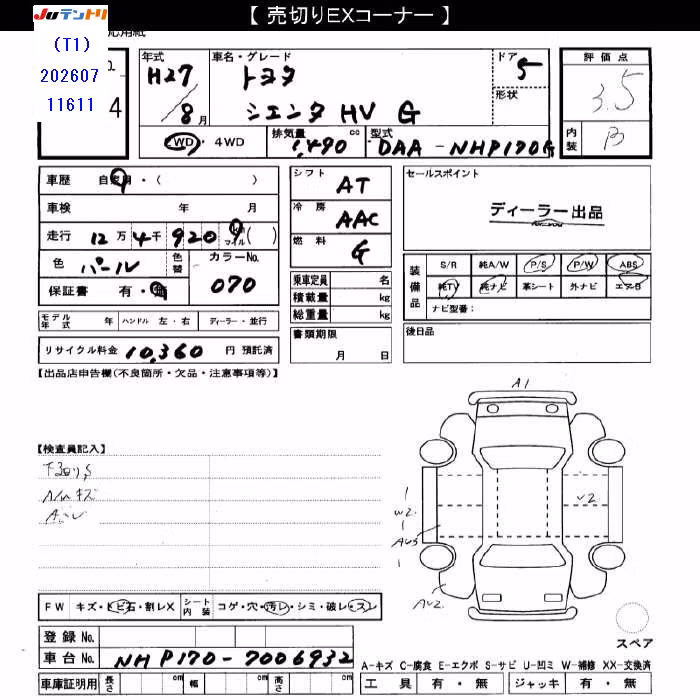 【 売切りEXコーナー 】
JUテントリ
(T1)
202607
11611
4
年式 H27/8月
車名・グレード トヨタ シエンタ HV G
ドア 5
形状
評価点 3.5
内装 B
2WD・4WD
排気量 1,490 cc
型式 DAA-NHP170G
車歴 自家用・( )
車検 年 月
走行 12万4千920 km マイル ( )
色 パール 色替 カラーNo. 070
保証書 有・無
シフト AT
冷房 AAC
燃料 G
乗車定員 名
積載量 kg
総重量 kg
セールスポイント
ディーラー出品
装備品
S/R 純A/W P/S P/W ABS
純TV 純ナビ 革シート 外ナビ エアB
ナビ型番:
モデル年式 年 ハンドル 左・右 ディーラー・並行
書類期限 月 日
後日品
リサイクル料金 10,360 円 預託済
【出品店申告欄(不良箇所・欠品・注意事項等)】
【検査員記入】
下回りS
A/W キズ
A1
W2
U2
AU2
FW キズ・トビ石・割レX
シート内装 コゲ・穴・汚レ・シミ・破レ・スレ
スペア
登録No.
車台No. NHP170-7006932
A-キズ C-腐食 E-エクボ S-サビ U-凹ミ W-補修 XX-交換済
車庫証明用 長さ cm 幅 cm 高さ cm
工具 有・無 ジャッキ 有・無